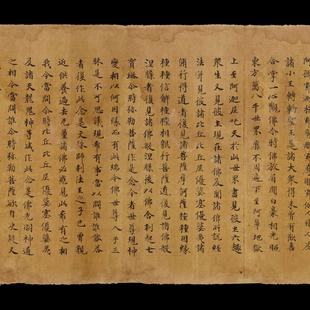 諸小王轉輪聖王是諸大眾得未曾有歡喜
合掌一心觀佛尒時佛放眉間白毫相光照
東方萬八千世界靡不周遍下至阿鼻地獄
上至阿迦尼吒天於此世界盡見彼土六趣
眾生又見彼土現在諸佛及聞諸佛所說經
法并見彼諸比丘比丘尼優婆塞優婆夷諸
脩行得道者復見諸菩薩摩訶薩種種因緣
種種信解種種相貌行菩薩道復見諸佛般
涅槃者復見諸佛般涅槃後以佛舍利起七
寶塔尒時弥勒菩薩作是念今者世尊現神
變相以何因緣而有此瑞今佛世尊入于三
昧是不可思議現希有事當以問誰誰能答
者復作此念是文殊師利法王之子已曾親
近供養過去无量諸佛必應見此希有之相
我今當問尒時比丘比丘尼優婆塞優婆夷
及諸天龍鬼神等咸作此念是佛光明神通
之相今當問誰尒時弥勒菩薩欲自決疑又